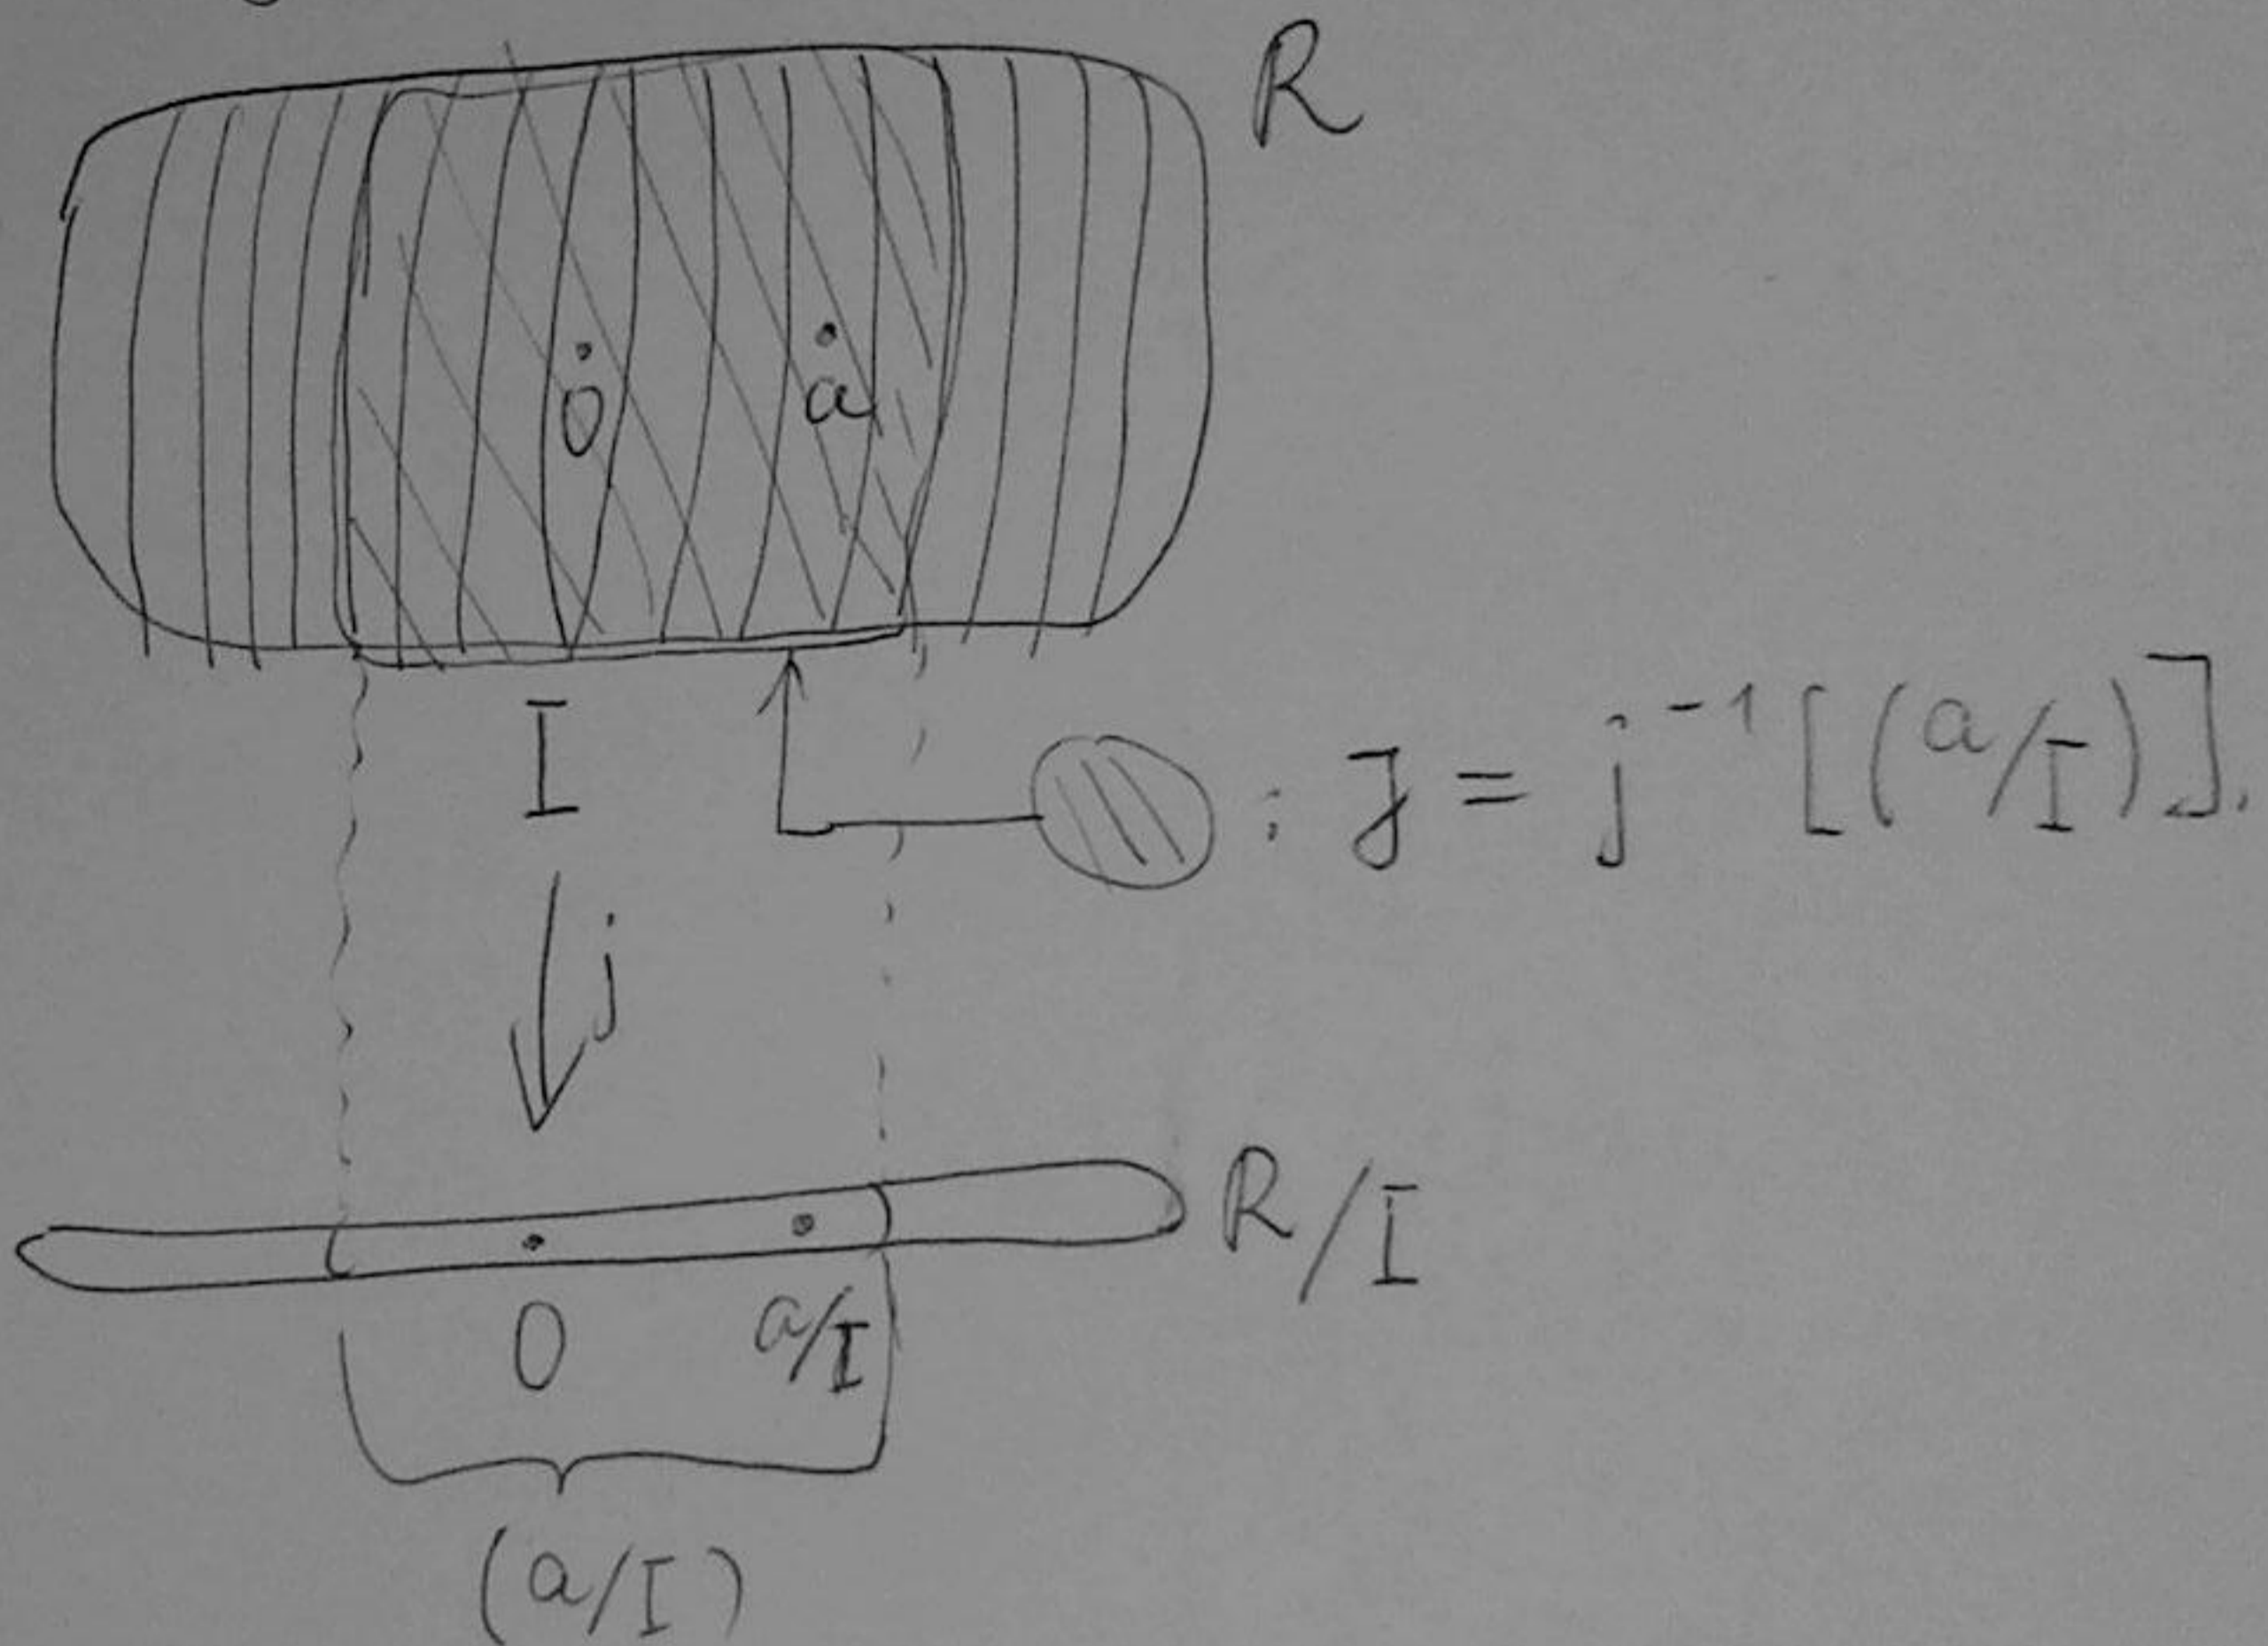 R
0
a
I
: J = j⁻¹[(a/I)].
j
R/I
0
a/I
(a/I)